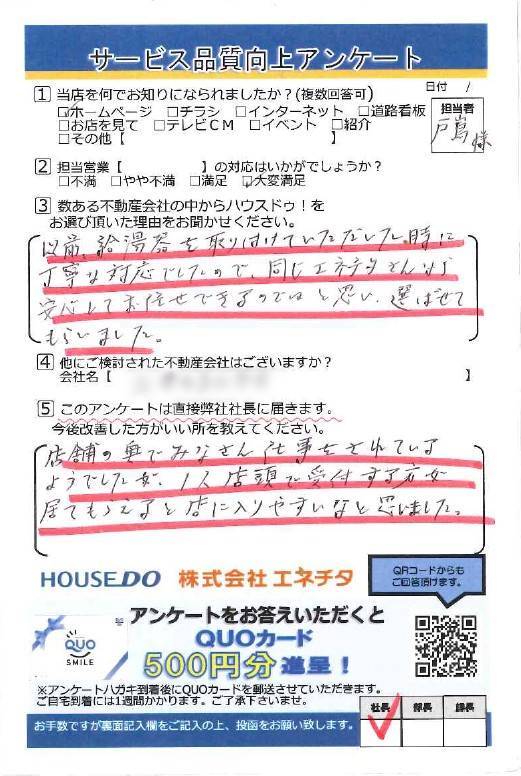 サービス品質向上アンケート
日付　/
1 当店を何でお知りになられましたか？(複数回答可)
☑ホームページ □チラシ □インターネット □道路看板
□お店を見て □テレビCM □イベント □紹介
□その他【　】
担当者
戸嶌様
2 担当営業【　】の対応はいかがでしょうか？
□不満 □やや不満 □満足 ☑大変満足
3 数ある不動産会社の中からハウスドゥ！を
お選び頂いた理由をお聞かせください。
以前、給湯器を取り付けていただいた時に
丁寧な対応でしたので、同じエネチタさんなら
安心してお任せできるのではと思い、選ばせて
もらいました。
4 他にご検討された不動産会社はございますか？
会社名【　】
5 このアンケートは直接弊社社長に届きます。
今後改善した方がいい所を教えてください。
店舗の奥でみなさん仕事をされている
ようでしたが、1人店頭で受付する方が
居てもらえると店に入りやすいなと思いました。
HOUSEDO 株式会社 エネチタ
QRコードからも
ご回答頂けます。
アンケートをお答えいただくと
QUOカード
500円分進呈！
QUO
SMILE
※アンケートハガキ到着後にQUOカードを郵送させていただきます。
ご自宅到着には1週間かかります。ご了承下さいませ。
お手数ですが裏面記入欄をご記入の上、投函をお願い致します。
社長 部長 課長